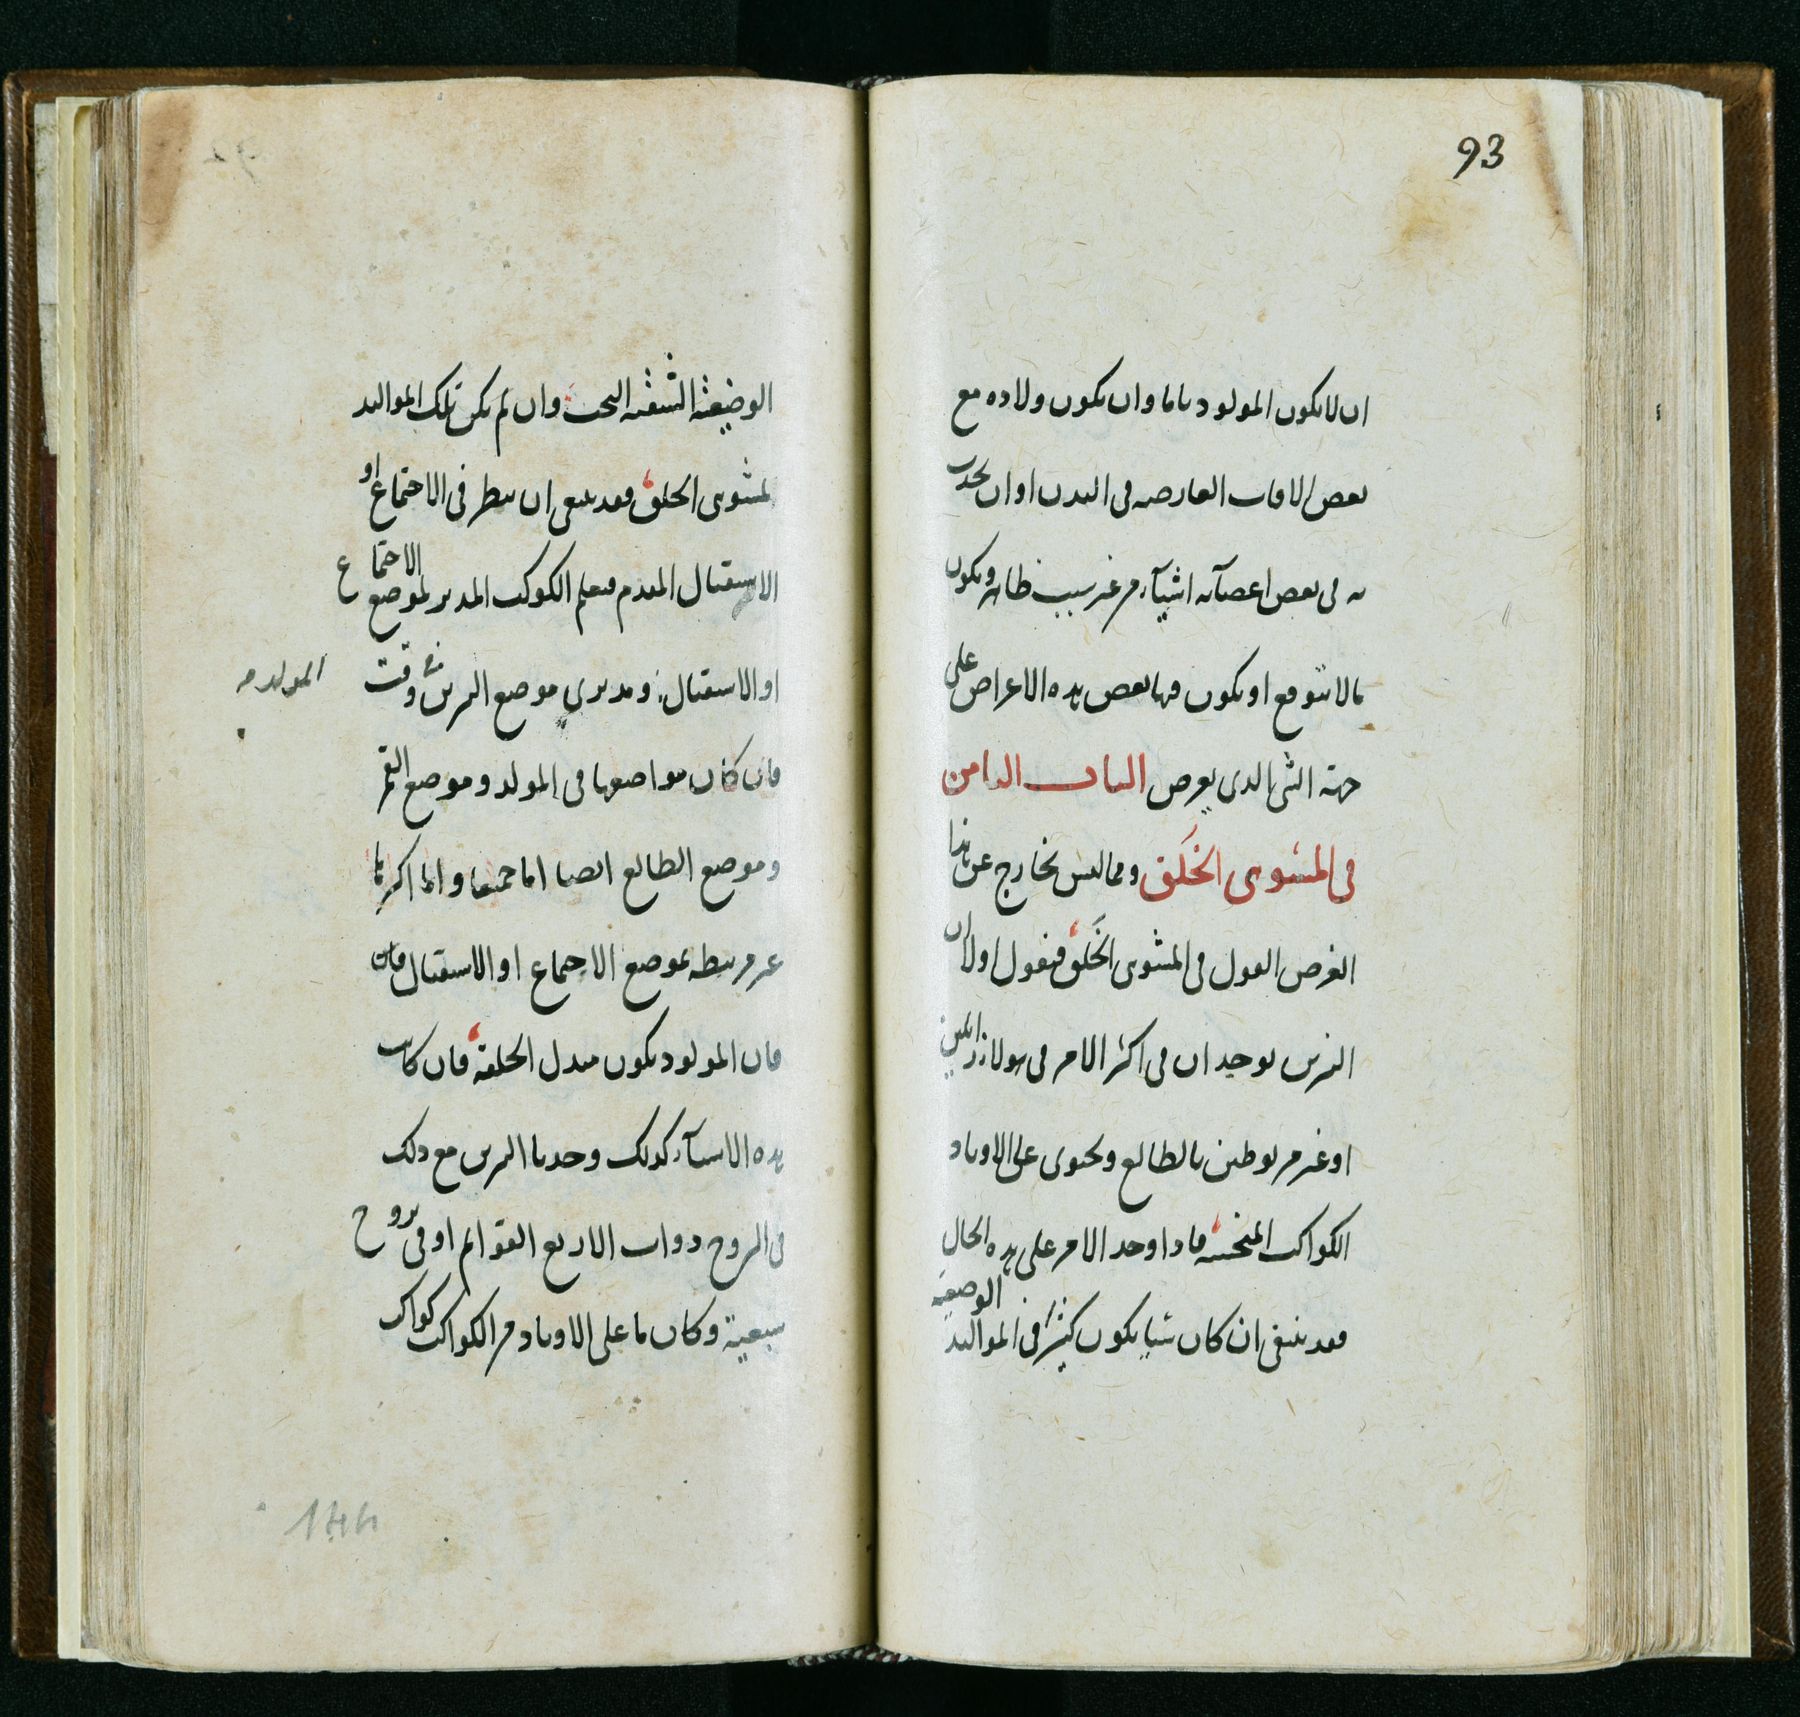 93
ان لا يكون المولود تاما وان يكون ولاده مع
بعض الافات العارضه فى البدن او ان يحدث
به فى بعض اعضآئه اشيآء من غير سبب ظاهر ويكون
مالا يتوقع او يكون فيها بعض هذه الاعراض على
جهة الشى الذى يعرض الباب الثامن
فى المشوى الخلق ومما ليس بخارج عن هذا
الغرض القول فى المشوى الخلق فنقول اولا ان
النيرين يوجدان فى اكثر الامر فى هولا زائلين
او غير مربوطين بالطالع ويحتوى على الاوتاد
الكواكب المنحسه فاذا وجد الامر على هذه الحال
فقد ينبغى ان كان شيا يكون كثيرا فى المواليد الوضيعة
الوضيعة الشقية البحت وان لم يكن تلك المواليد
لمشوى الخلق فقد ينبغى ان ينظر فى الاجتماع او
الاستقبال المقدم فيعلم الكوكب المدبر لموضع الاجتماع
او الاستقبال ومدبرى موضع النيرين فى وقت
المولد
فان كان مواضعها فى المولد وموضع القمر
وموضع الطالع ايضا اما جميعا واما اكثرها
غير مرتبطه بموضع الاجتماع او الاستقبال فان
فان المولود يكون مبدل الخلقة فان كانت
هذه الاشيآء كذلك وجدنا النيرين مع ذلك
فى البروج ذوات الاربع القوائم او فى بروج
سبعية وكان ما على الاوتاد من الكواكب كواكب
144